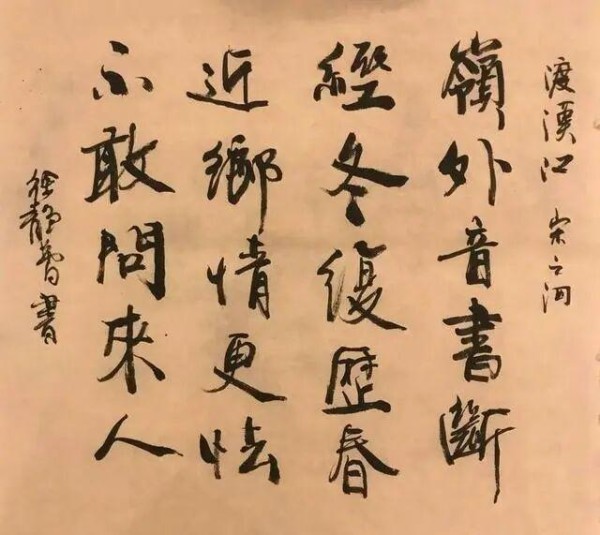 渡漢江 宋之问
嶺外音書斷
經冬復歷春
近鄉情更怯
不敢問來人
徐靜蕾書